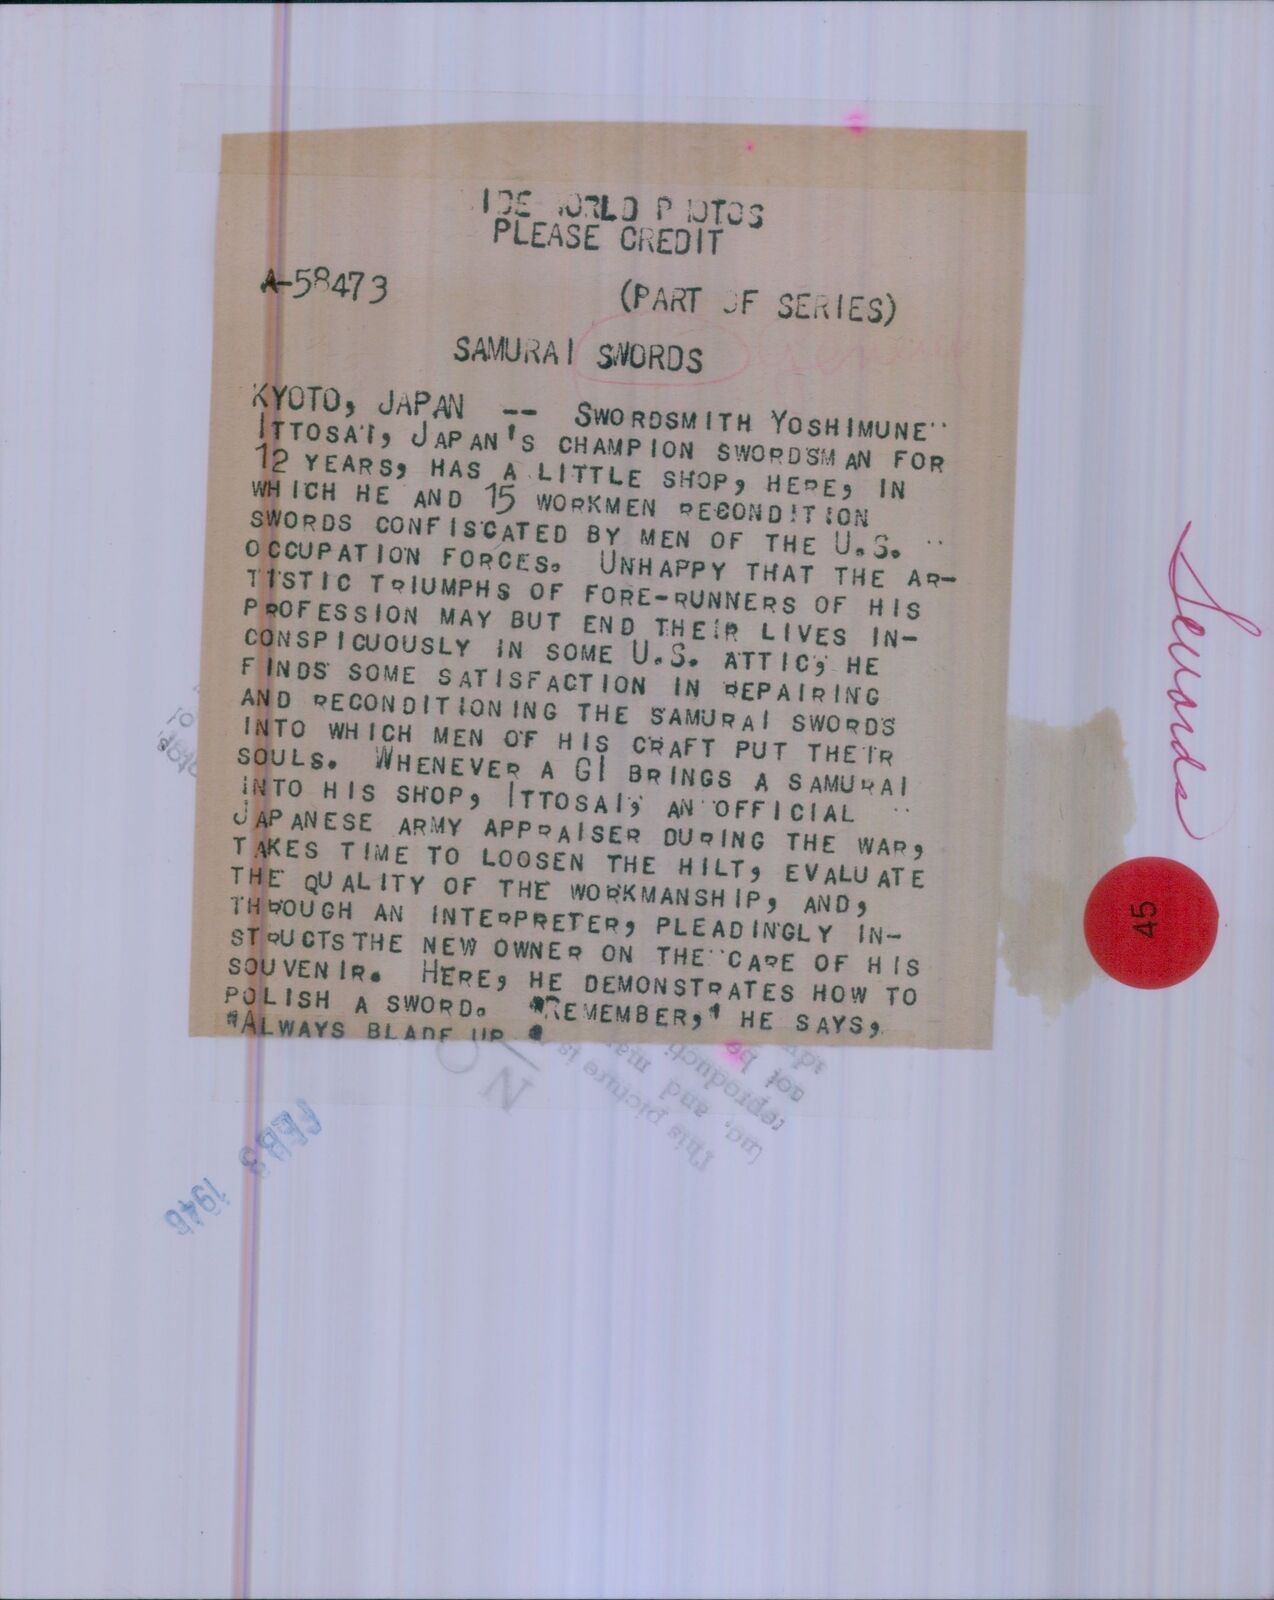 IDE WORLD PHOTOS
PLEASE CREDIT
A-58473
(PART OF SERIES)
SAMURAI SWORDS
KYOTO, JAPAN -- SWORDSMITH YOSHIMUNE
ITTOSAI, JAPAN'S CHAMPION SWORDSMAN FOR
12 YEARS, HAS A LITTLE SHOP, HERE, IN
WHICH HE AND 15 WORKMEN RECONDITION
SWORDS CONFISCATED BY MEN OF THE U.S.
OCCUPATION FORCES. UNHAPPY THAT THE AR-
TISTIC TRIUMPHS OF FORE-RUNNERS OF HIS
PROFESSION MAY BUT END THEIR LIVES IN-
CONSPICUOUSLY IN SOME U.S. ATTIC, HE
FINDS SOME SATISFACTION IN REPAIRING
AND RECONDITIONING THE SAMURAI SWORDS
INTO WHICH MEN OF HIS CRAFT PUT THEIR
SOULS. WHENEVER A GI BRINGS A SAMURAI
INTO HIS SHOP, ITTOSAI, AN OFFICIAL
JAPANESE ARMY APPRAISER DURING THE WAR,
TAKES TIME TO LOOSEN THE HILT, EVALUATE
THE QUALITY OF THE WORKMANSHIP, AND,
THROUGH AN INTERPRETER, PLEADINGLY IN-
STRUCTS THE NEW OWNER ON THE CARE OF HIS
SOUVENIR. HERE, HE DEMONSTRATES HOW TO
POLISH A SWORD. "REMEMBER," HE SAYS,
"ALWAYS BLADE UP."
Swords
45
This picture is
and
reproducti
not be
FEB 8 1946